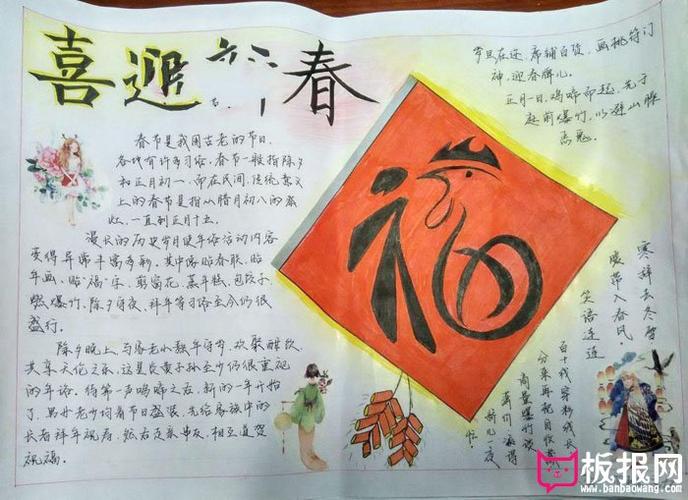 喜迎春
春节是我国古老的节日,
各地有许多习俗。春节一般指除夕
和正月初一,而在民间,传统意义
上的春节是指从腊月初八的
灶,一直到正月十五。
漫长的历史岁月使年俗活动内容
变得异常丰富多彩。其中像贴春联、贴
年画、贴“福”字、剪窗花、蒸年糕、包饺子、
燃爆竹、除夕守夜、拜年等习俗至今仍很
盛行。
除夕晚上,与家老小熬年守岁,欢聚酣饮,
共享天伦之乐,这是炎黄子孙至今仍很重视
的年俗。待第一声鸡啼之后,新的一年开始
了,男女老少均着节日盛装,先给家族中的
长者拜年祝寿,然后走亲串友,相互道贺
祝福。
福
岁旦在迩,席铺百货,画桃符门
神,迎春牌儿。
正月一日,鸡鸣而起,先于
庭前爆竹,以避山臊
恶鬼。
寒辞去冬雪
暖带入春风。
笑语连连
板报网
www.banbaowang.com